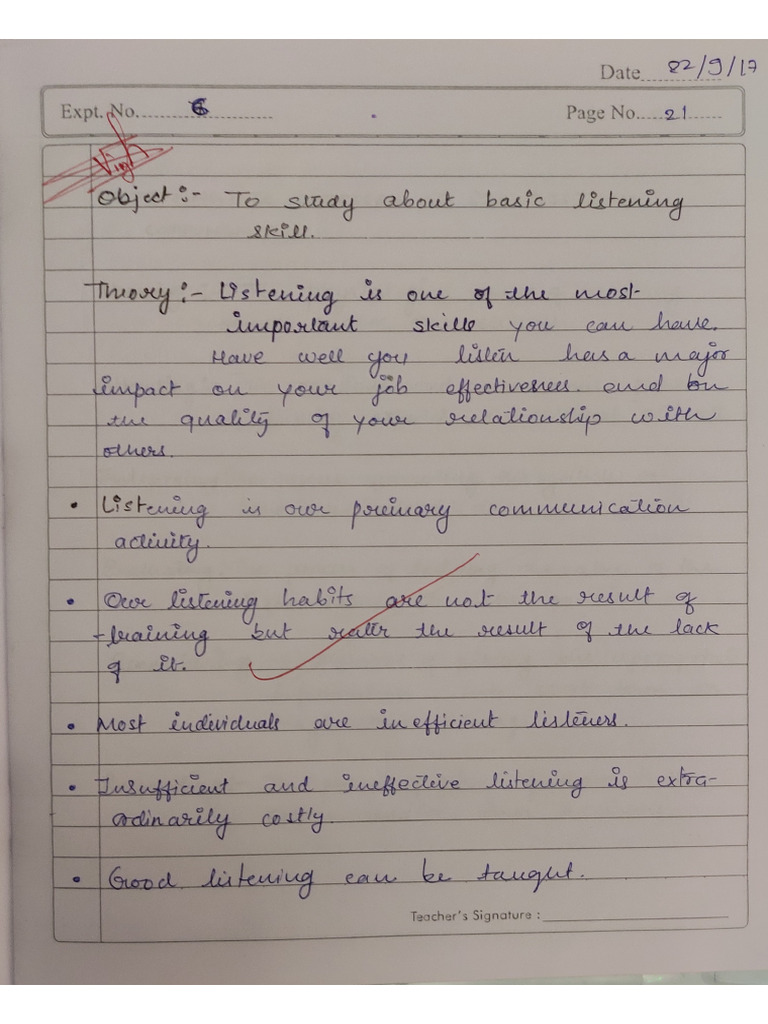 Date 22/9/17
Expt. No. 6 Page No. 21
Object :- To study about basic listening
skill.
Theory :- Listening is one of the most
important skills you can have.
Have well you listen has a major
impact on your job effectiveness. and on
the quality of your relationship with
others.
• Listening is our primary communication
activity.
• Our listening habits are not the result of
training but rather the result of the lack
of it.
• Most individuals are inefficient listeners.
• Insufficient and ineffective listening is extra-
ordinarily costly.
• Good listening can be taught.
Teacher's Signature :